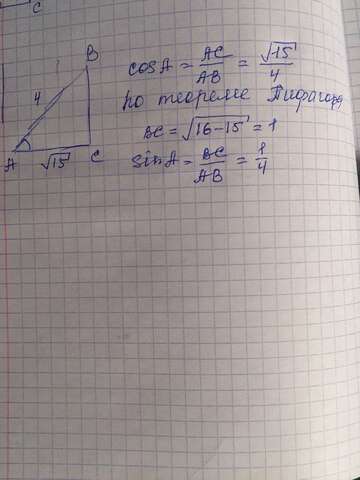 C
B
4
A
√15
C
cosA = AC/AB = √15/4
по теореме Пифагора
BC = √16-15 = 1
sinA = BC/AB = 1/4